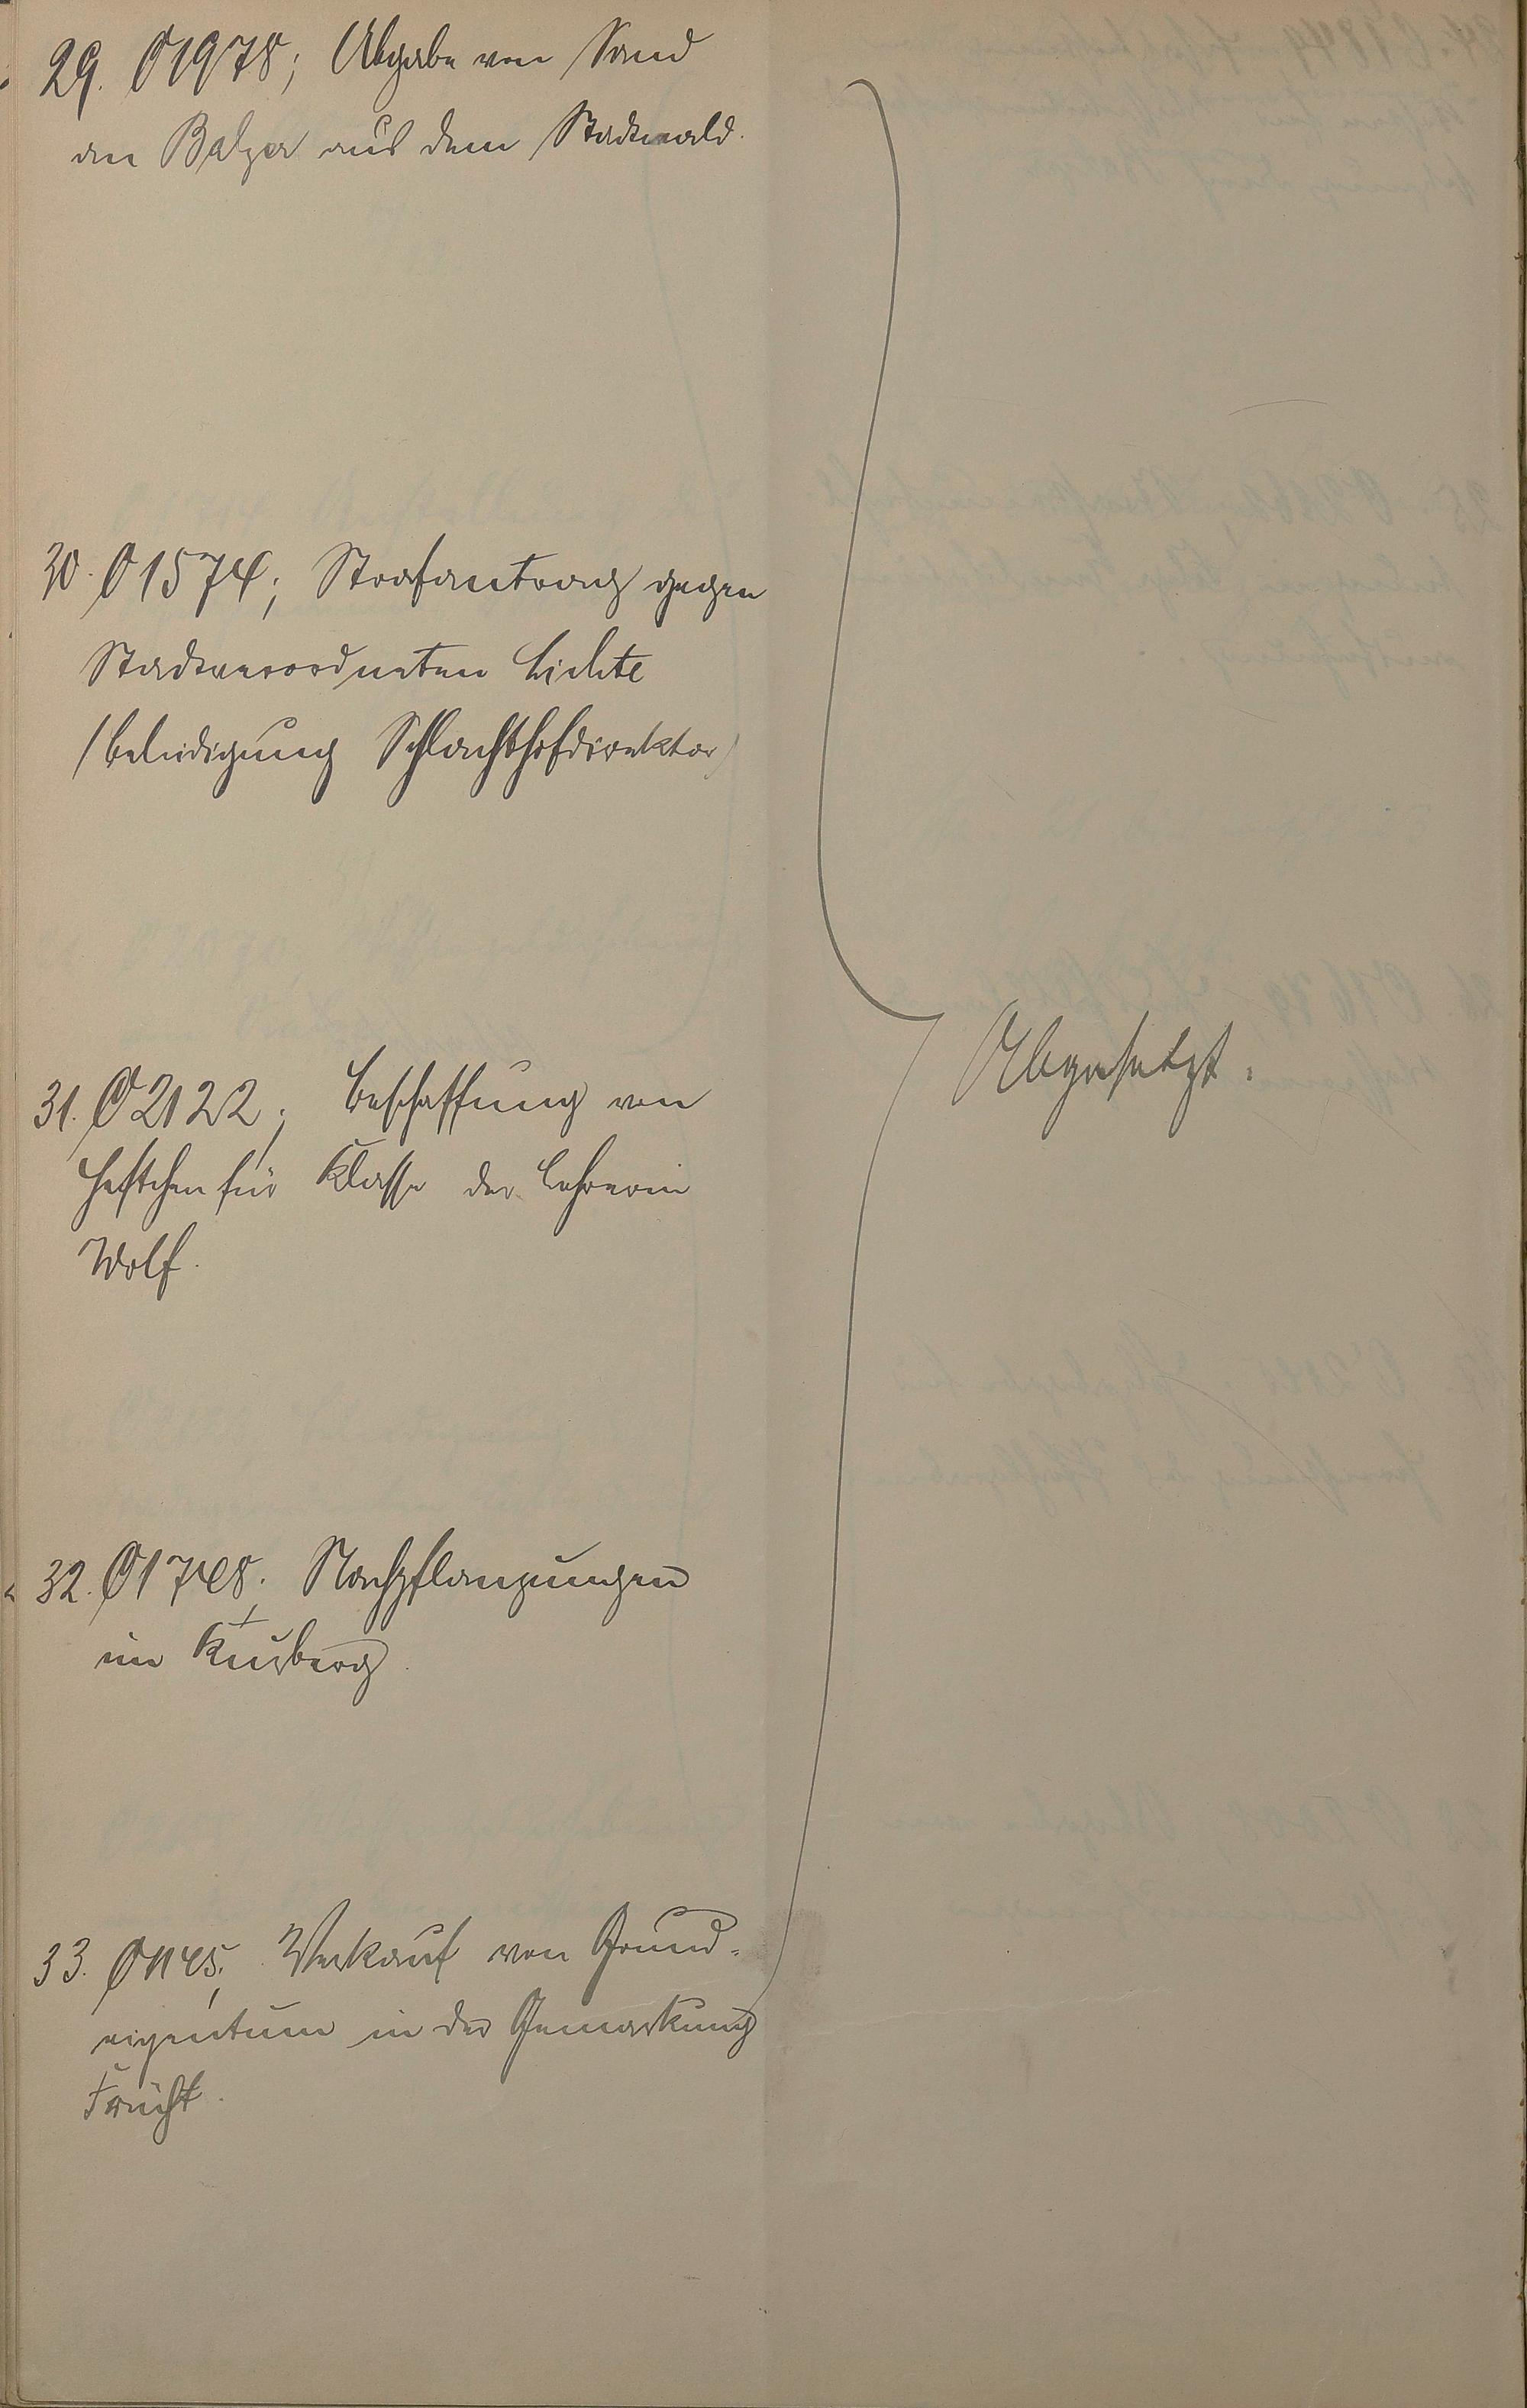 29. O 1978; Abgabe von Sand
an Balzer aus dem Stadtwald.
30. O 1574; Strafantrag gegen
Stadtverordneten Lichte
(Beleidigung Schlachthofdirektor)
31. O 2122; Beschaffung von
Heftchen für Klasse der Lehrerin
Wolf.
32. O 1748; Nachpflanzungen
im Kurberg.
33. O 1145; Verkauf von Grund-
eigentum in der Gemarkung
Frücht.
Abgesetzt.